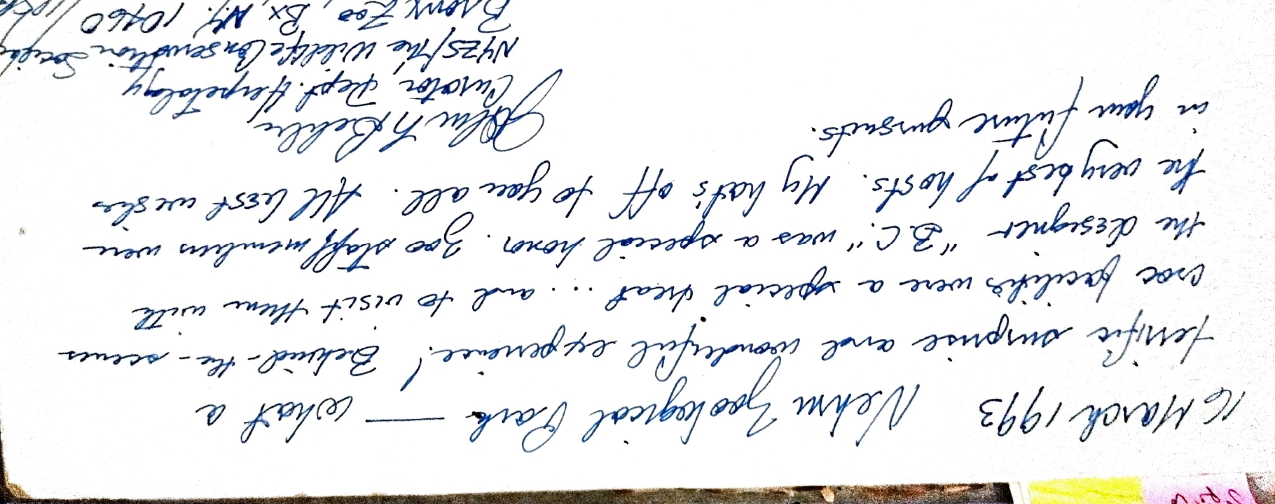 16 March 1993 Nehru Zoological Park — What a
terrific surprise and wonderful experience! Behind-the-scenes
croc facilities were a special treat ... and to visit them with
the designer "B.C." was a special honor. Zoo staff members were
the very best of hosts. My hat's off to you all. All best wishes
in your future pursuits.
John L. Behler
Curator, Dept. Herpetology
NYZS/The Wildlife Conservation Society
Bronx Zoo, Bx, N.Y. 10460